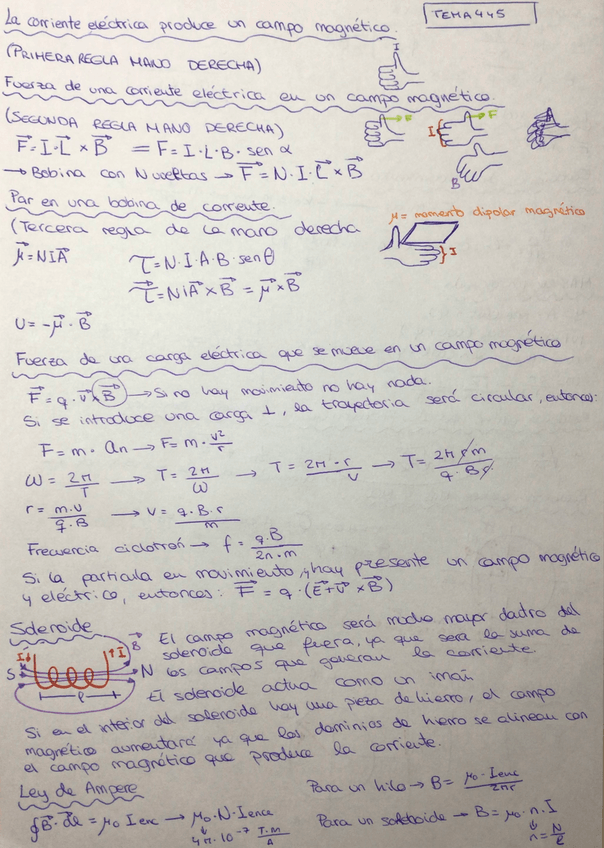 TEMA 4 y 5
La corriente eléctrica produce un campo magnético.
(PRIMERA REGLA MANO DERECHA)
I
Fuerza de una corriente eléctrica en un campo magnético.
(SEGUNDA REGLA MANO DERECHA)
F I F
F⃗ = I · L⃗ × B⃗ = F = I · L · B · sen α
→ Bobina con N vueltas → F⃗ = N · I · L⃗ × B⃗
B
Par en una bobina de corriente.
μ = momento dipolar magnético
(Tercera regla de la mano derecha
I
μ⃗ = NIA⃗ τ = N · I · A · B · sen θ
τ⃗ = NiA⃗ × B⃗ = μ⃗ × B⃗
U = -μ⃗ · B⃗
Fuerza de una carga eléctrica que se mueve en un campo magnético
F⃗ = q · v⃗ × B⃗ → Si no hay movimiento no hay nada.
Si se introduce una carga ⊥, la trayectoria será circular, entonces:
F = m · an → F = m · v²/r
ω = 2π/T → T = 2π/ω → T = 2π · r/v → T = 2π r m/q · B r
r = m · v/q · B → v = q · B · r/m
Frecuencia ciclotrón → f = q · B/2π · m
Si la partícula en movimiento, y hay presente un campo magnético
y eléctrico, entonces: F⃗ = q · (E⃗ + v⃗ × B⃗)
Soleroide
I I B⃗
S N
l
El campo magnético será mucho mayor dadro del
soleroide que fuera, ya que será la suma de
los campos que generan la corriente.
El soleroide actua como un imán
Si en el interior del soleroide hay una peza de hierro, el campo
magnético aumentará ya que los dominios de hierro se alinean con
el campo magnético que produce la corriente.
Ley de Ampere
Para un hilo → B = μ₀ · Ienc/2πr
∮B⃗ · dl⃗ = μ₀ Ienc → μ₀ · N · Ienc
4π · 10⁻⁷ T·m/A
Para un → B = μ₀ · n · I
n = N/l